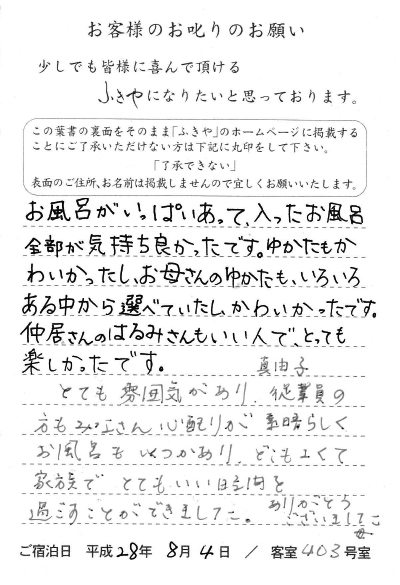 お客様のお叱りのお願い
少しでも皆様に喜んで頂ける
ふきやになりたいと思っております。
この葉書の裏面をそのまま「ふきや」のホームページに掲載する
ことにご了承いただけない方は下記に丸印をして下さい。
「了承できない」
表面のご住所、お名前は掲載しませんので宜しくお願いいたします。
お風呂がいっぱいあって、入ったお風呂
全部が気持ち良かったです。ゆかたもか
わいかったし、お母さんのゆかたも、いろいろ
ある中から選べていたし、かわいかったです。
仲居さんのはるみさんもいい人で、とっても
楽しかったです。
真由子
とても雰囲気があり、従業員の
方もみなさん心配りが素晴らしく
お風呂もいくつかあり、どこもよくて
家族でとてもいい時間を
過ごすことができました。
ありがとう
ございました
母
ご宿泊日 平成28年 8月4日 / 客室403号室